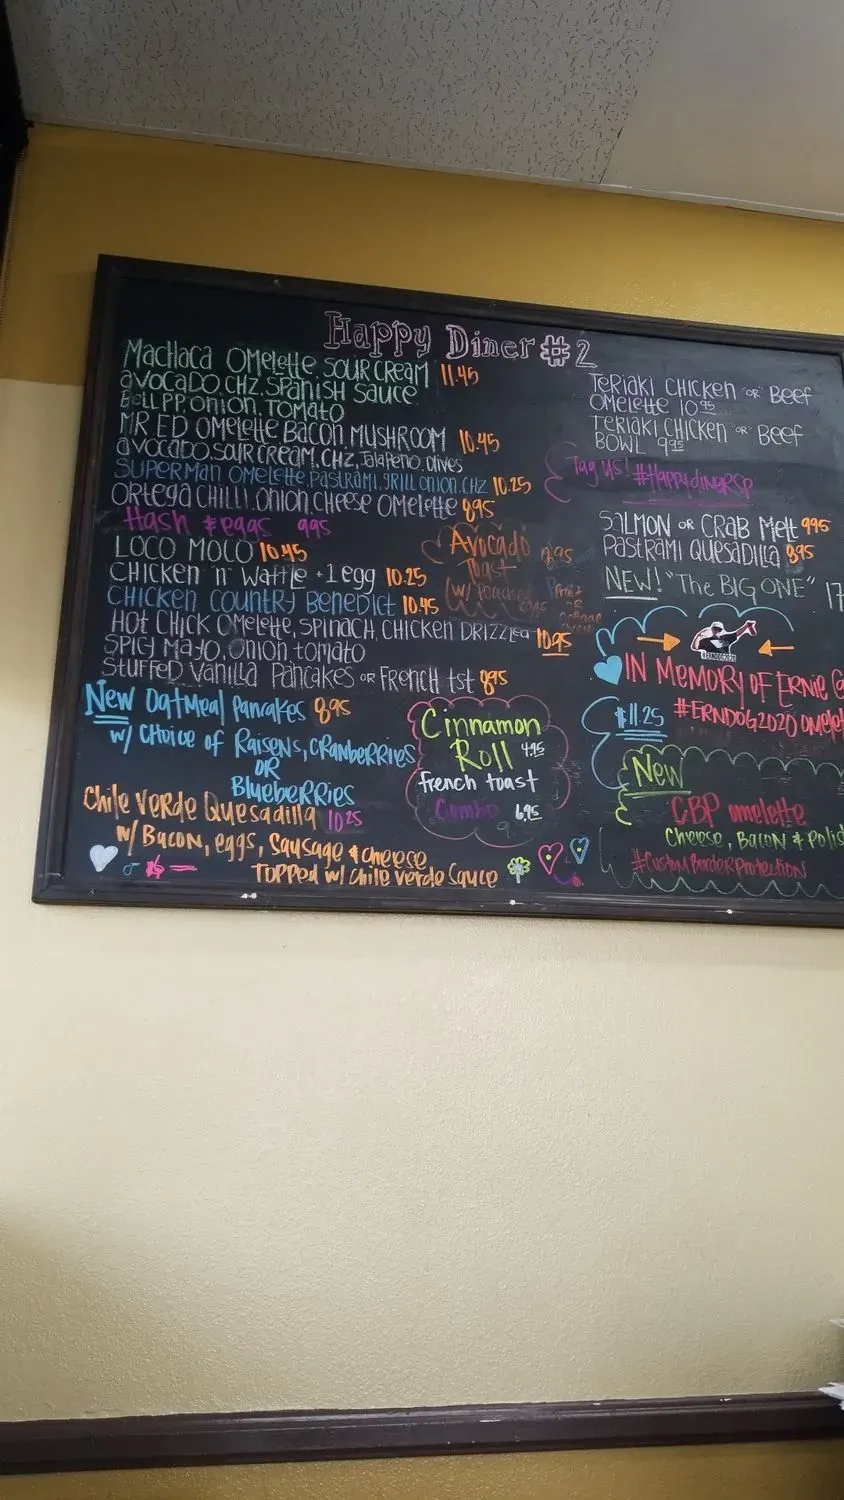 Happy Diner #2
Machaca Omelette Sour Cream 11.45
Avocado, Chz, Spanish Sauce
Bell PP, Onion, Tomato
Mr Ed Omelette Bacon Mushroom 10.45
Avocado, Sour Cream, Chz, Jalapeno, Olives
Superman Omelette Pastrami, Grill Onion, Chz 10.25
Ortega Chilli, Onion, Cheese Omelette 8.95
Hash & eggs 9.95
Loco Moco 10.45
Chicken n' Waffle +1 egg 10.25
Chicken Country Benedict 10.45
Hot Chick Omelette, Spinach, Chicken Drizzled 10.95
Spicy Mayo, Onion Tomato
Stuffed Vanilla Pancakes or French tst 8.95
New Oatmeal Pancakes 8.95
w/ Choice of Raisens, Cranberries
OR
Blueberries
Chile Verde Quesadilla 10.25
w/ Bacon, eggs, Sausage & Cheese
Topped w/ Chile Verde Sauce
Avocado 8.95
Toast
(w/ Poached
Cinnamon
Roll 4.95
French toast
Combo 6.95
Teriaki Chicken "or" Beef
Omelette 10.95
Teriaki Chicken "or" Beef
Bowl 9.95
Tag us! #Happydinersp
Salmon or Crab Melt 9.95
Pastrami Quesadilla 8.95
NEW! "The BIG ONE" 17
In Memory of Ernie
$11.25 #ERNDOG2020 omelet
New
CBP omelette
Cheese, Bacon & Polis
#CustomBorderProtection